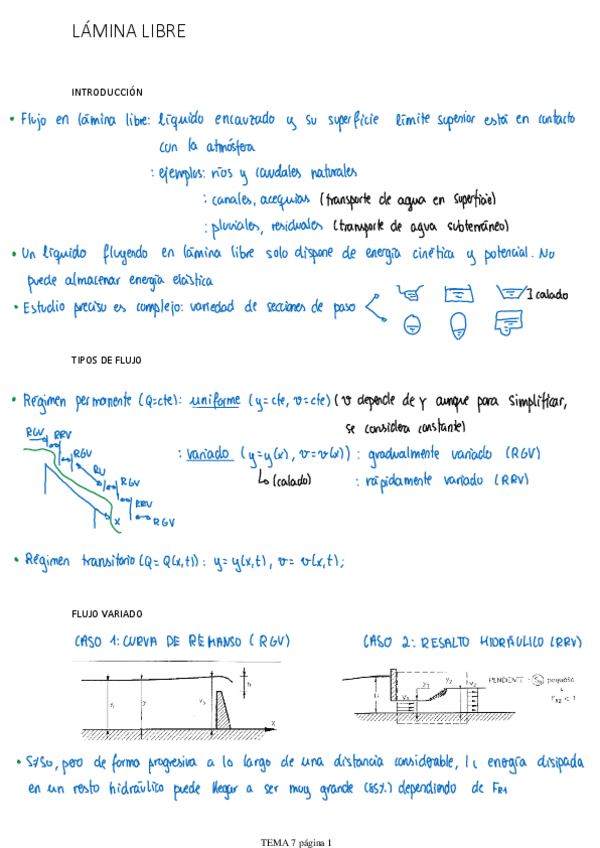 LÁMINA LIBRE
INTRODUCCIÓN
• Flujo en lámina libre: líquido encauzado y su superficie límite superior está en contacto
con la atmósfera
: ejemplos: ríos y caudales naturales
: canales, acequias (transporte de agua en superficie)
: pluviales, residuales (transporte de agua subterráneo)
• Un líquido fluyendo en lámina libre solo dispone de energía cinética y potencial. No
puede almacenar energía elástica
• Estudio preciso es complejo: variedad de secciones de paso
I calado
TIPOS DE FLUJO
• Régimen permanente (Q=cte): uniforme (y=cte, v=cte) (v depende de y aunque para simplificar,
se considera constante)
RGV RRV
RGV
RU
RGV
RRV
x
RGV
: variado (y=y(x), v=v(x)) : gradualmente variado (RGV)
↳ (calado) : rápidamente variado (RRV)
• Régimen transitorio (Q=Q(x,t)): y=y(x,t), v=v(x,t);
FLUJO VARIADO
CASO 1: CURVA DE REMANSO (RGV)
CASO 2: RESALTO HIDRÁULICO (RRV)
y
h
x
y₁
y₂
v₂
PENDIENTE: pequeña
<1
• S≠S₀, pero de forma progresiva a lo largo de una distancia considerable, la energía disipada
en un resto hidráulico puede llegar a ser muy grande (85%) dependiendo de FR1
TEMA 7 página 1